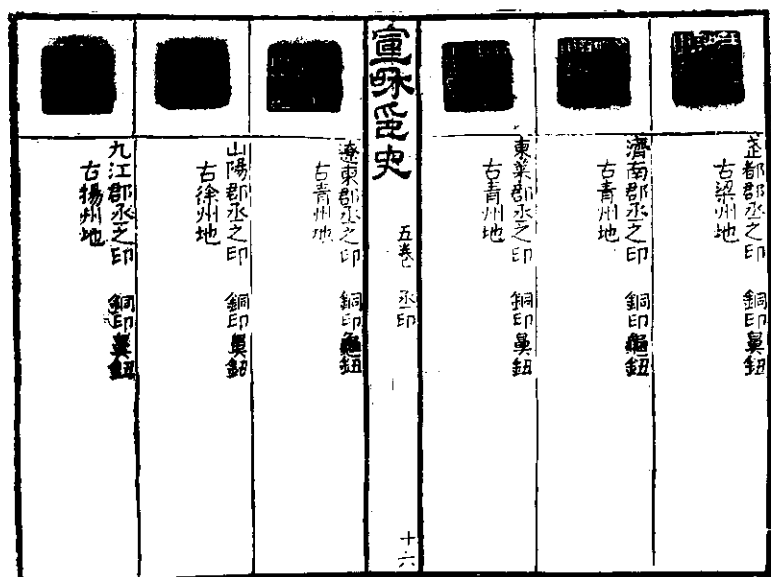 武都郡丞之印　銅印鼻鈕
古梁州地
濟南郡丞之印　銅印龜鈕
古青州地
東萊郡丞之印　銅印鼻鈕
古青州地
宣咊印史　五卷　丞印　十六
遼東郡丞之印　銅印龜鈕
古青州地
山陽郡丞之印　銅印鼻鈕
古徐州地
九江郡丞之印　銅印鼻鈕
古揚州地